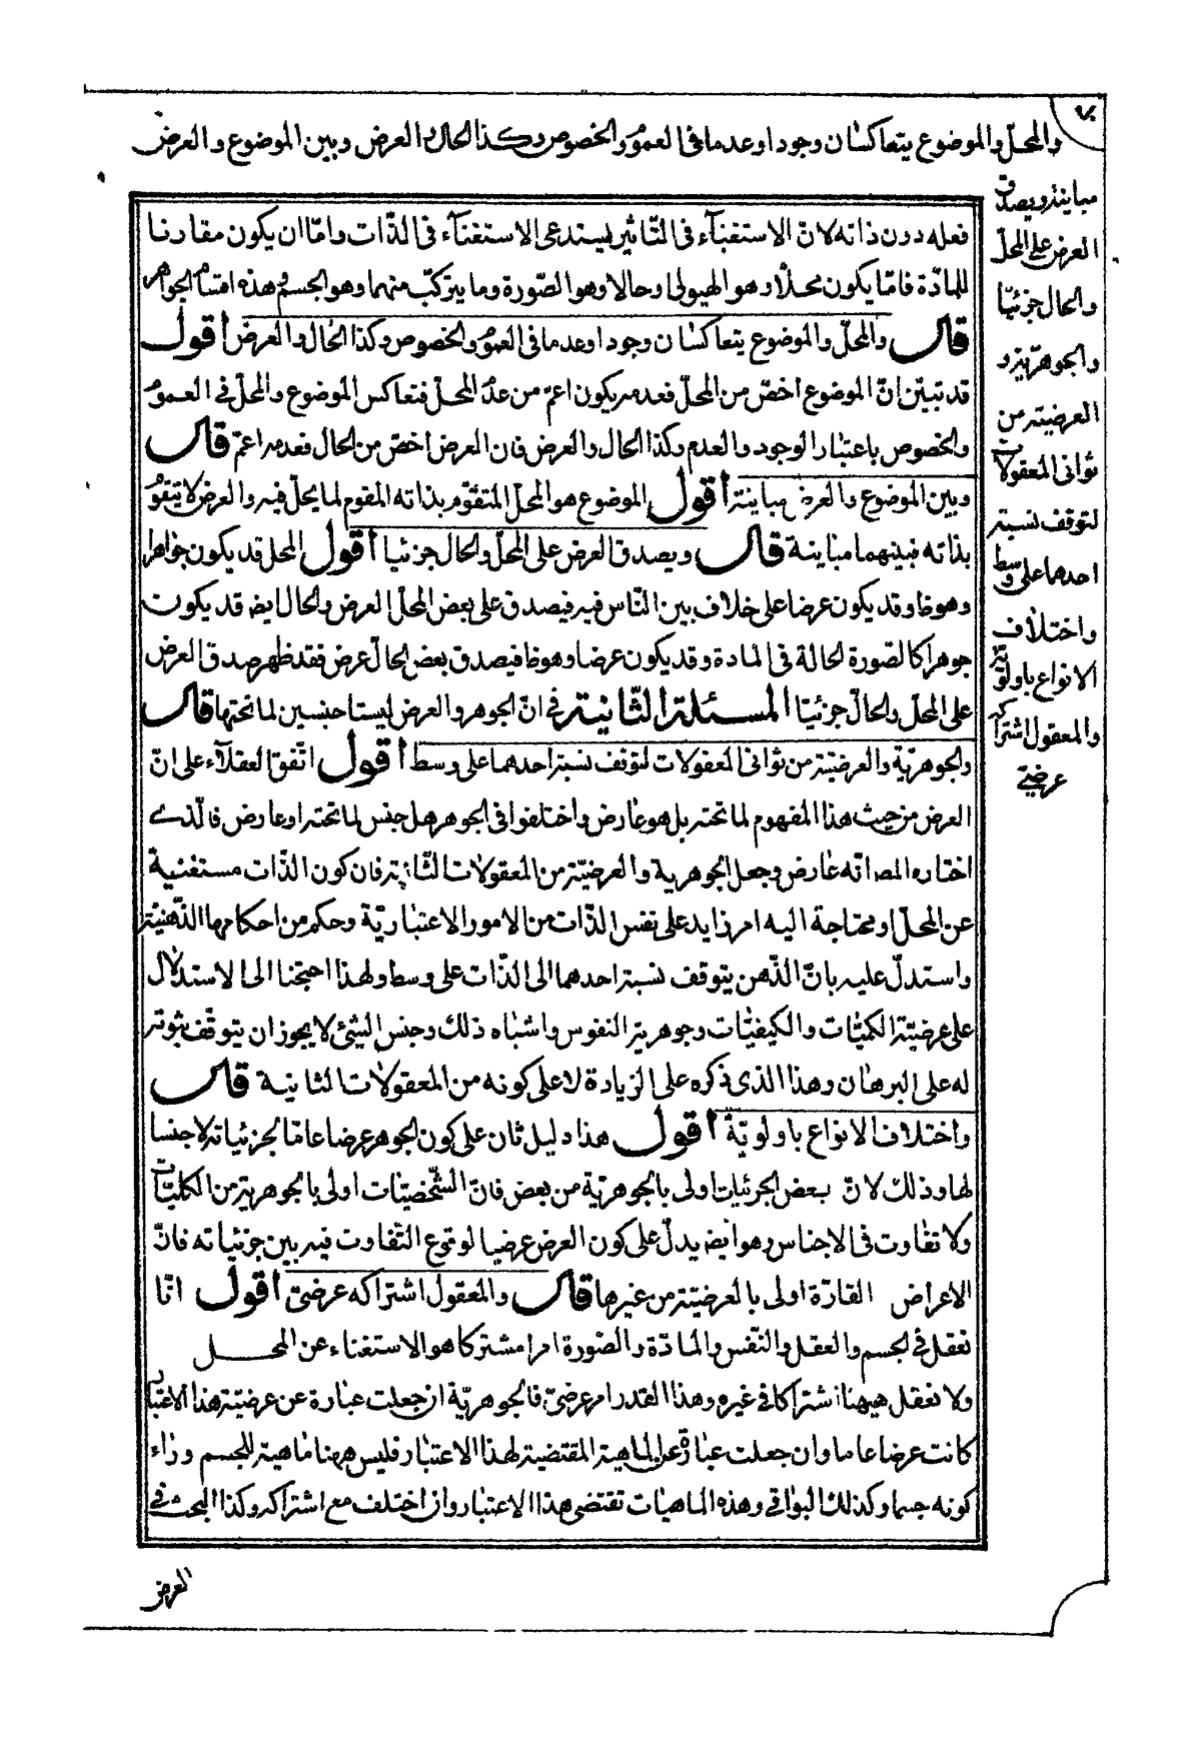 والمحلّ والموضوع يتعاكسان وجودا وعدما فى العموم والخصوص وكذا الحال والعرض وبين الموضوع والعرض
مباينة ويصدق
العرض على المحلّ
والحال جزئيّا
والجوهريّة و
العرضيّة من
ثوانى المعقولات
لتوقف نسبة
احدهما على وسط
واختلاف
الانواع باولويّة
والمعقول اشتراكه
عرضىّ
فعله دون ذاته لانّ الاستغناء فى التّاثير يستدعى الاستغناء فى الذّات وامّا ان يكون مقارنا
للمادّة فامّا يكون محلّا وهو الهيولى او حالا وهو الصّورة وما يتركّب منهما وهو الجسم فهذه اقسام الجواهر
قال والمحلّ والموضوع يتعاكسان وجودا وعدما فى العموم والخصوص وكذا الحال والعرض أقول
قد تبيّن انّ الموضوع اخصّ من المحلّ فعدمه يكون اعمّ من عدم المحلّ فتعاكس الموضوع والمحلّ فى العموم
والخصوص باعتبار الوجود والعدم وكذا الحال والعرض فان العرض اخصّ من الحال فعدمه اعمّ قال
وبين الموضوع والعرض مباينة أقول الموضوع هو المحلّ المتقوّم بذاته المقوم لما يحلّ فيه والعرض لا يتقوّم
بذاته فبينهما مباينة قال ويصدق العرض على المحلّ والحال جزئيا أقول المحل قد يكون جواهرا
وهو ظ وقد يكون عرضا على خلاف بين النّاس فيه فيصدق على بعض المحلّ العرض والحال ايضا قد يكون
جوهرا كالصّورة الحالة فى المادة وقد يكون عرضا وهو ظ فيصدق بعض الحالّ عرض فقد ظهر صدق العرض
على المحلّ والحالّ جزئيّا المسئلة الثّانية فى انّ الجوهر والعرض ليستا جنسين لما تحتها قال
والجوهريّة والعرضيّة من ثوانى المعقولات لتوقف نسبة احدهما على وسط أقول اتّفق العقلاء على انّ
العرض من حيث هذا المفهوم لما تحته بل هو عارض واختلفوا فى الجوهر هل جنس لما تحته او عارض فالّذى
اختاره المص انّه عارض وجعل الجوهرية والعرضيّة من المعقولات الثّانية فان كون الذّات مستغنية
عن المحلّ او محتاجة اليه امر زايد على نفس الذّات من الامور الاعتباريّة وحكم من احكامها الذّهنيّة
واستدلّ عليه بانّ الذّهن يتوقف نسبة احدهما الى الذّات على وسط ولهذا احتجنا الى الاستدلال
على عرضيّة الكميّات والكيفيّات وجوهرية النفوس واشباه ذلك وجنس الشئ لا يجوز ان يتوقّف ثبوته
له على البرهان وهذا الذى ذكره على الزيادة لا على كونه من المعقولات الثانية قال
واختلاف الانواع باولويّة أقول هذا دليل ثان على كون الجوهر عرضا عامّا لجزئياته لا جنسا
لها وذلك لانّ بعض الجزئيات اولى بالجوهريّة من بعض فانّ الشّخصيّات اولى بالجوهريّة من الكليّات
ولا تفاوت فى الاجناس وهو ايضا يدلّ على كون العرض عرضيا لوقوع التّفاوت فيه بين جزئياته فانّ
الاعراض القارّة اولى بالعرضيّة من غيرها قال والمعقول اشتراكه عرضىّ أقول انّا
نعقل فى الجسم والعقل والنّفس والمادّة والصّورة امرا مشتركا هو الاستغناء عن المحل
ولا نعقل هيهنا اشتراكا فى غيره وهذا القدر امر عرضىّ فالجوهريّة ان جعلت عبارة عن عرضيّة هذا الاعتبار
كانت عرضا عاما وان جعلت عبارة عن الماهية المقتضية لهذا الاعتبار فليس ههنا ماهية للجسم وراء
كونه جسما وكذلك البواقى وهذه الماهيات تقتضى هذا الاعتبار وان اختلف مع اشتراكه وكذا البحث فى
العرض